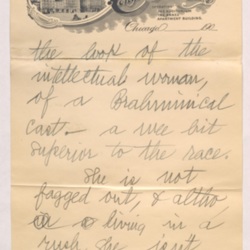 APARTMENT BUILDING.
Chicago 190
the look of the
intellectual woman,
of a Brahminical
cast – a wee bit
superior to the race.
She is not
fagged out, & altho
living in a
rush she isn't